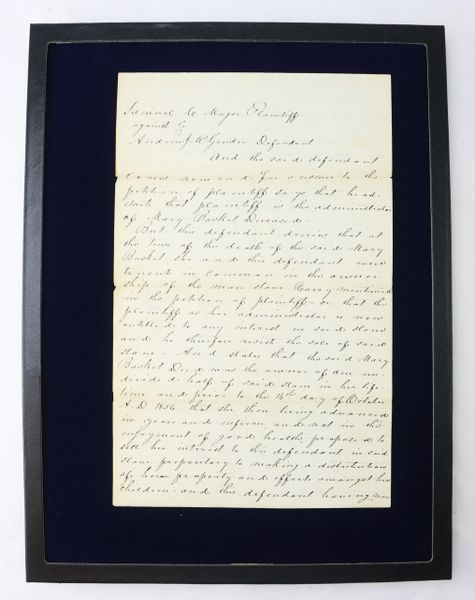 Samuel C Major Plaintiff
against
Andrew J. McGruder Defendant
And the said defendant
comes now and for answer to the
petition of plaintiff says that he ad-
mits that plaintiff is the administrator
of Mary Basket Deceased -
But this defendant denies that at
the time of the death of the said Mary
Basket she and this defendant were
tenents in common in the owner
ship of the man slave mentioned
in the petition of plaintiff - or that the
plaintiff as her administrator is now
entitled to any interest in said slave
and he therefore resist the sale of said
slave - And states that the said Mary
Basket Decd was the owner of one un-
divided half of said slave in her life-
time and prior to the day of October
A.D. 1856. that she then being advanced
in years and infirm and not in the
enjoyment of good health, proposed to
sell her interest to this defendant in said
slave preparatory to making a distribution
of her property and effects amongst her
children - and this defendant having